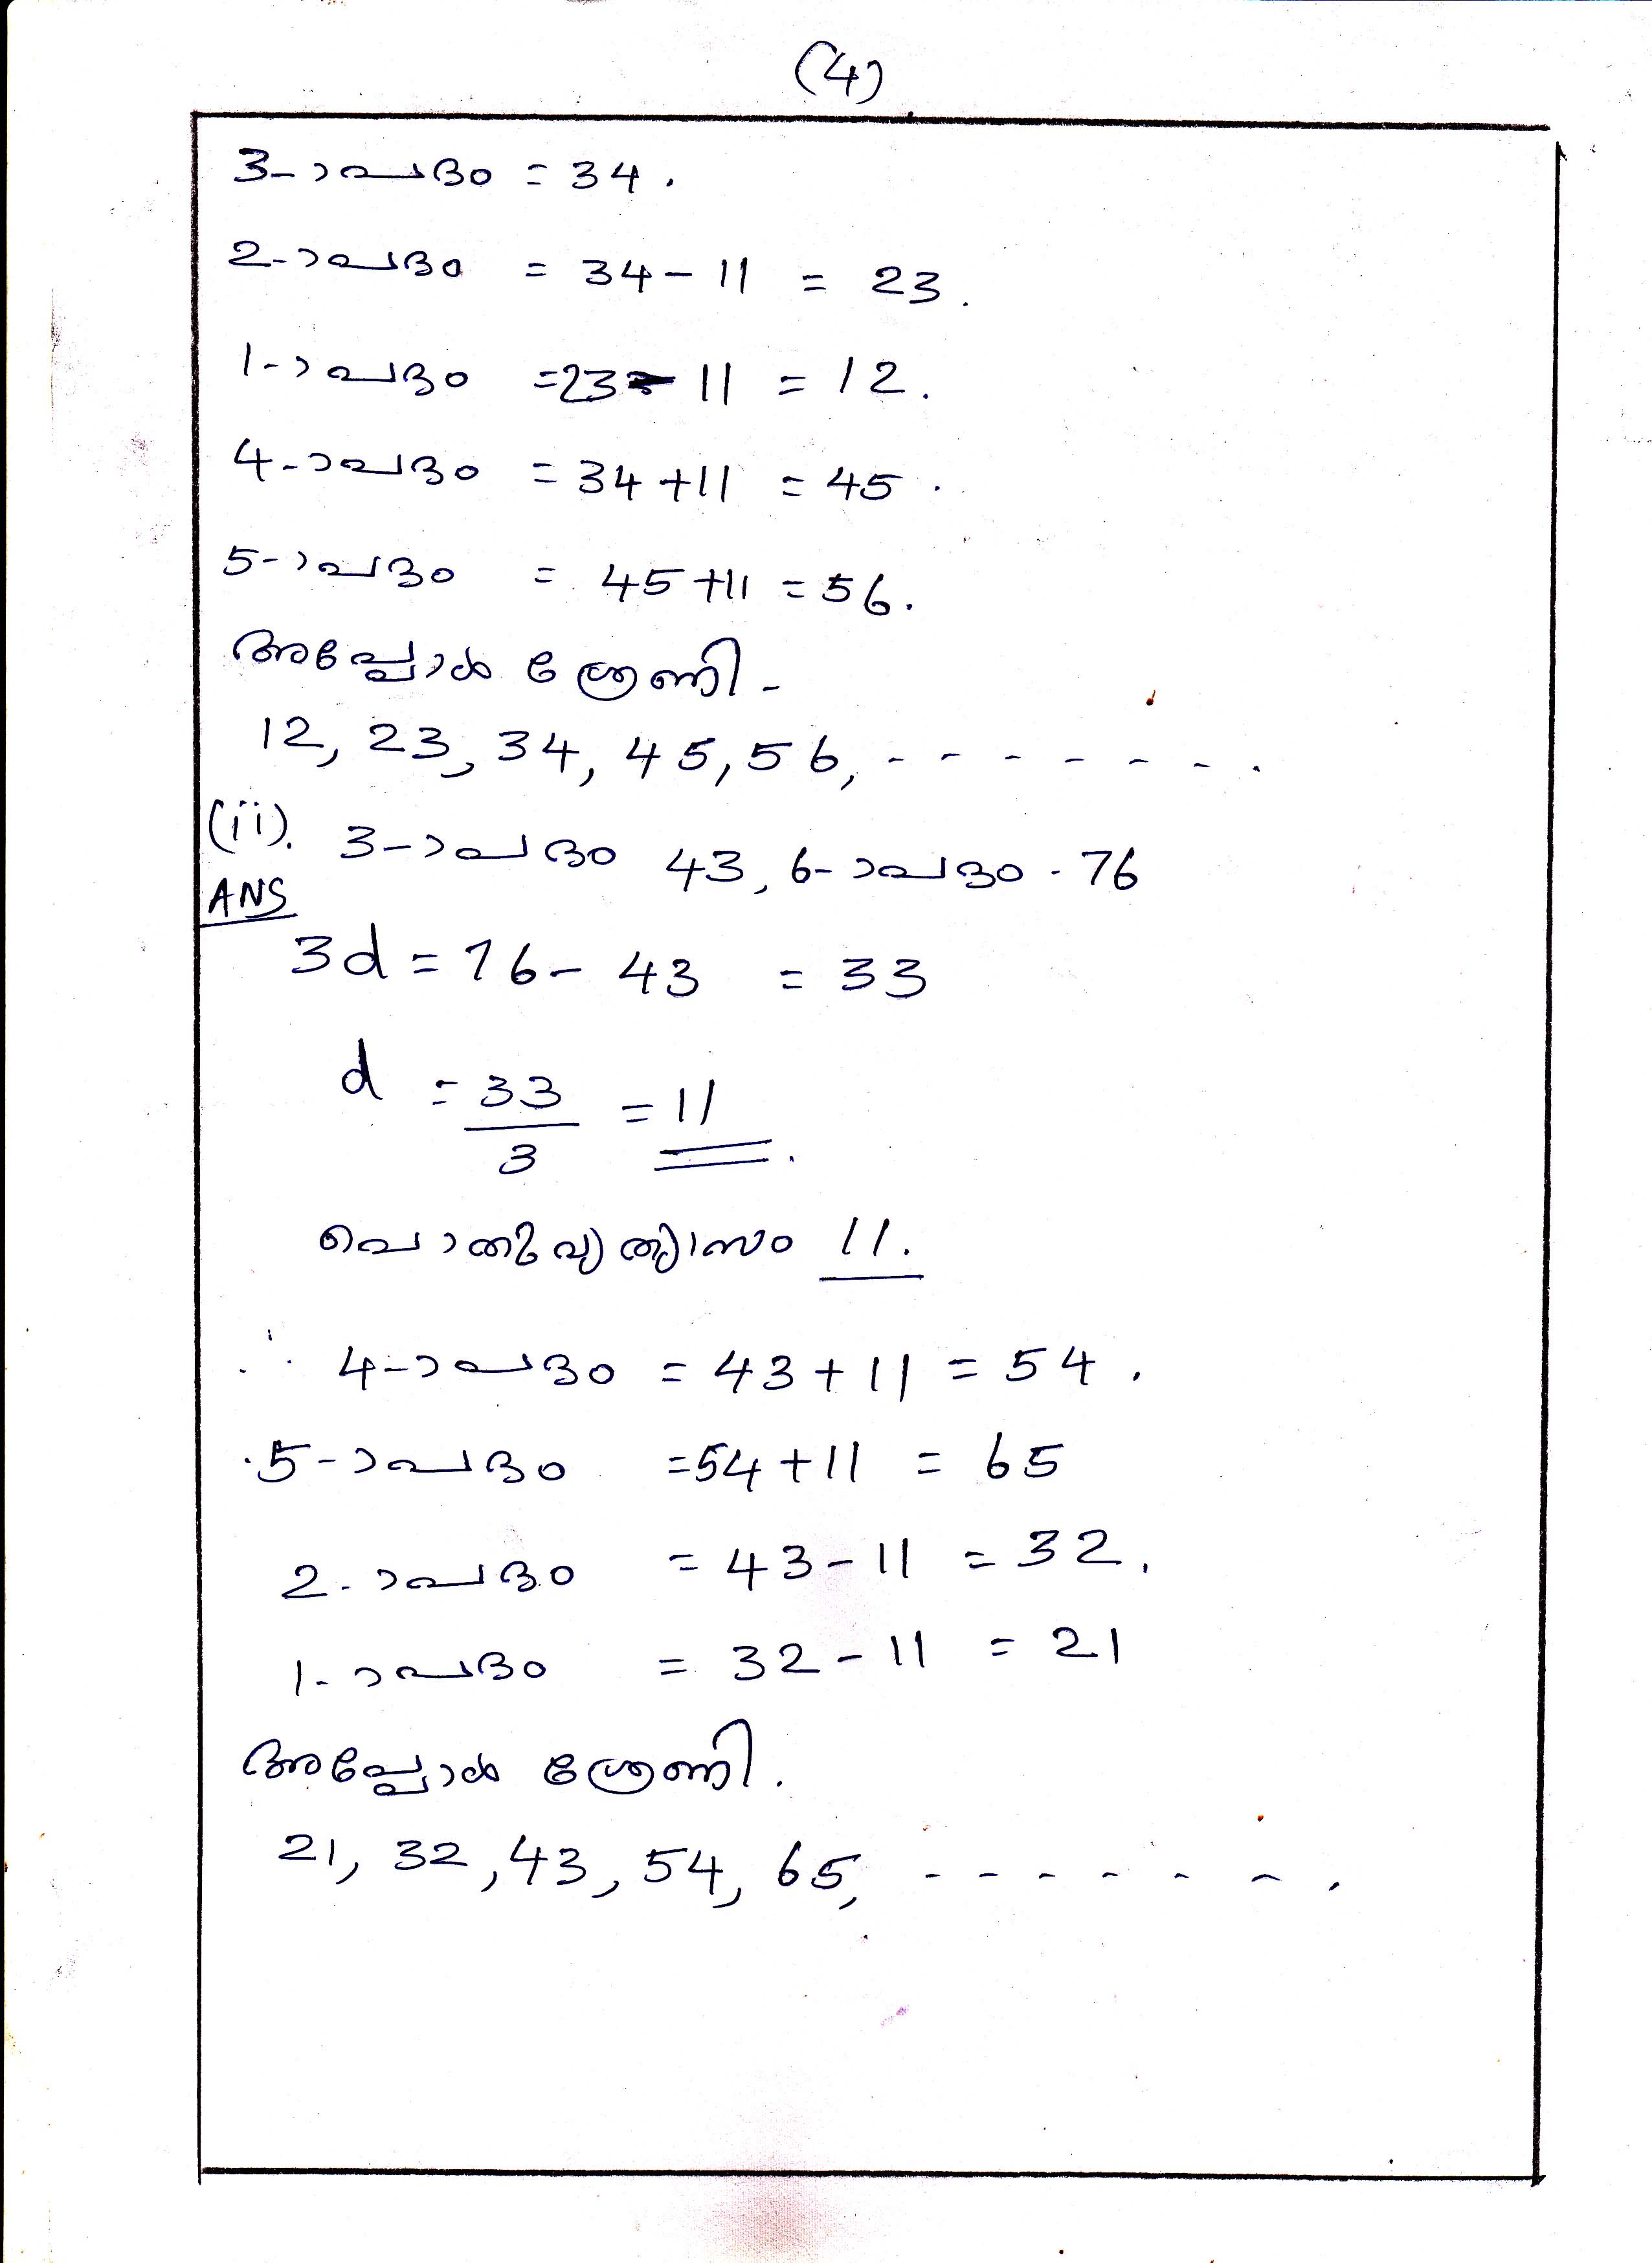 (4)
3-ാപദം = 34.
2-ാപദം = 34 - 11 = 23.
1-ാപദം = 23 - 11 = 12.
4-ാപദം = 34 + 11 = 45.
5-ാപദം = 45 + 11 = 56.
അപ്പോൾ ശ്രേണി -
12, 23, 34, 45, 56, - - - - - - - .
(ii). 3-ാപദം 43, 6-ാപദം - 76
ANS
3d = 76 - 43 = 33
d = 33/3 = 11.
പൊതുവ്യത്യാസം 11.
∴ 4-ാപദം = 43 + 11 = 54.
5-ാപദം = 54 + 11 = 65
2-ാപദം = 43 - 11 = 32.
1-ാപദം = 32 - 11 = 21
അപ്പോൾ ശ്രേണി.
21, 32, 43, 54, 65, - - - - - - .